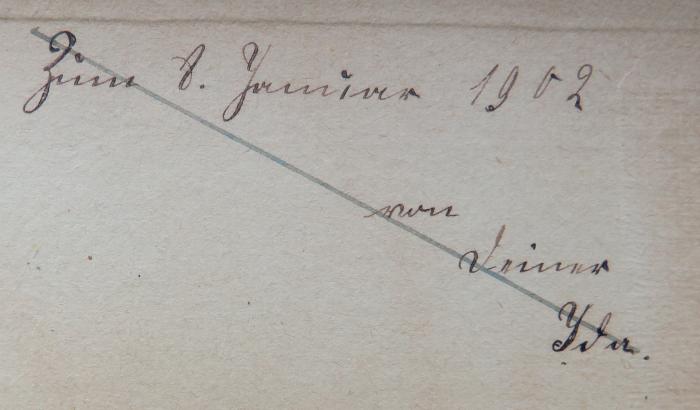 Zum 8. Januar 1902
von
Deiner
Ida.